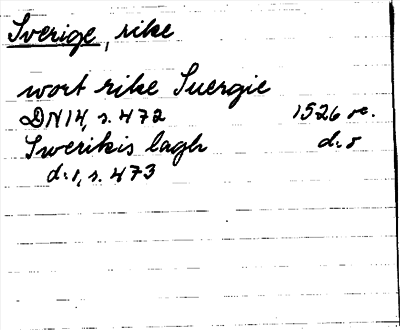 Sverige, rike
wort rike Suergie
DN 14, s. 472 1526 rc.
Swerikis lagh d:o
d:o, s. 473